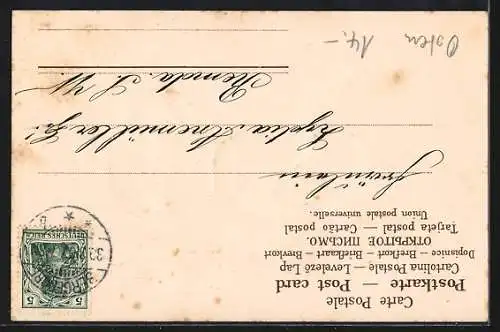 Carte Postale
Postkarte — Post card
Cartolina Postale — Levelező Lap
Dopisnice — Brefkort — Briefkaart — Brevkort
ОТКРЫТОЕ ПИСЬМО.
Tarjeta postal — Cartão postal
Union postale universelle.
Fräulein
Lydia
Remda. S. W.
Osten
14,-
DEUTSCHES REICH
5 5